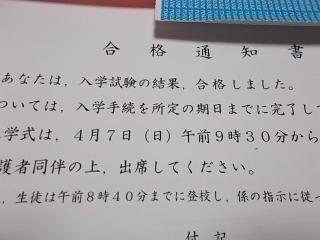 合格通知書
あなたは，入学試験の結果，合格しました。
ついては，入学手続を所定の期日までに完了して
学式は，４月７日（日）午前９時３０分から
護者同伴の上，出席してください。
，生徒は午前８時４０分までに登校し，係の指示に従っ
付記